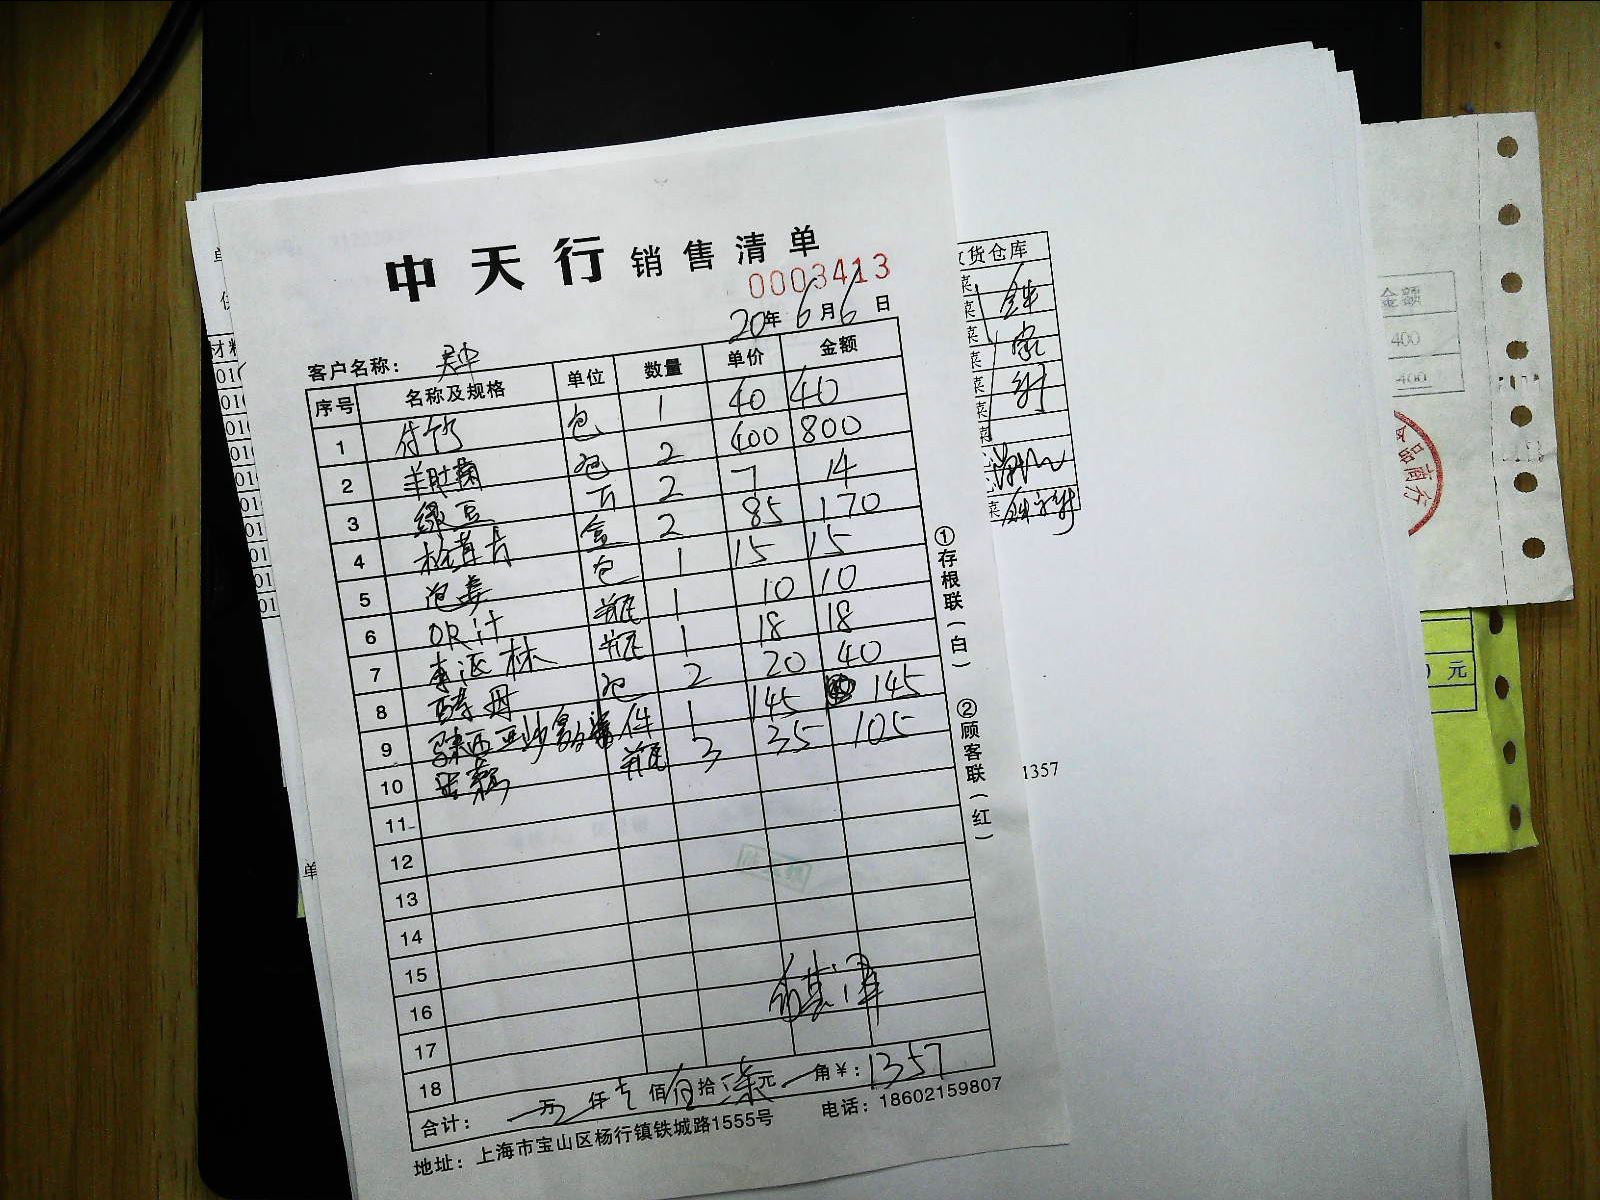 中天行 销售清单
0003413
20年6月6日
客户名称:
序号 名称及规格 单位 数量 单价 金额
1 付竹 包 1 40 40
2 羊肚菌 包 2 400 800
3 绿豆 斤 2 7 14
4 盒 2 85 170
5 泡姜 包 1 15 15
6 OR汁 瓶 1 10 10
7 李派林 瓶 1 18 18
8 酵母 包 2 20 40
9 马来西亚 件 1 145 145
10 瓶 3 35 105
11
12
13
14
15
16
17
18
合计: 万 仟 佰 拾 元 角 ¥: 1357
地址: 上海市宝山区杨行镇铁城路1555号 电话: 18602159807
①存根联(白) ②顾客联(红)
货仓库
菜
菜
菜
菜
菜
菜
菜
1357
金额
400
400
品商行
元
单
材料
01
01
01
01
01
01
01
01
01
01
单